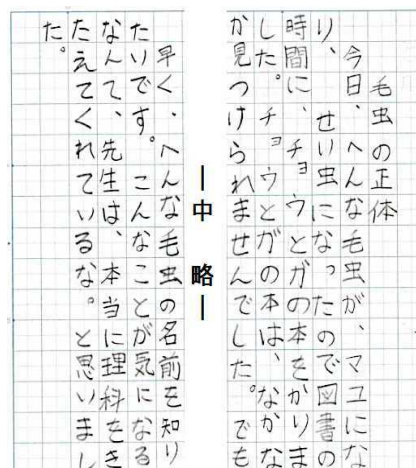 毛虫の正体
今日、へんな毛虫が、マユにな
り、せい虫になったので図書の
時間に、チョウとガの本をかりま
した。チョウとガの本は、なかな
か見つけられませんでした。でも
―中　略―
早く、へんな毛虫の名前を知り
たいです。こんなことが気になる
なんて、先生は、本当に理科をき
たえてくれているな。と思いまし
た。